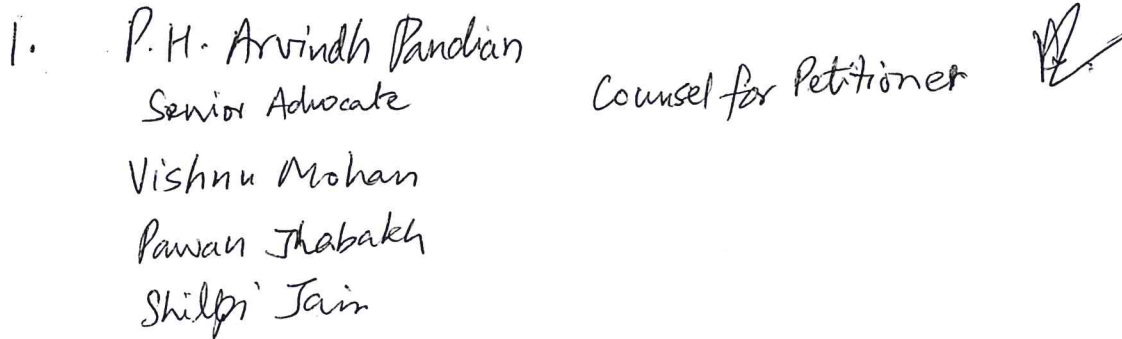 1. P.H. Arvindh Pandian
Senior Advocate
Counsel for Petitioner
Vishnu Mohan
Pawan Jhabakh
Shilpi Jain